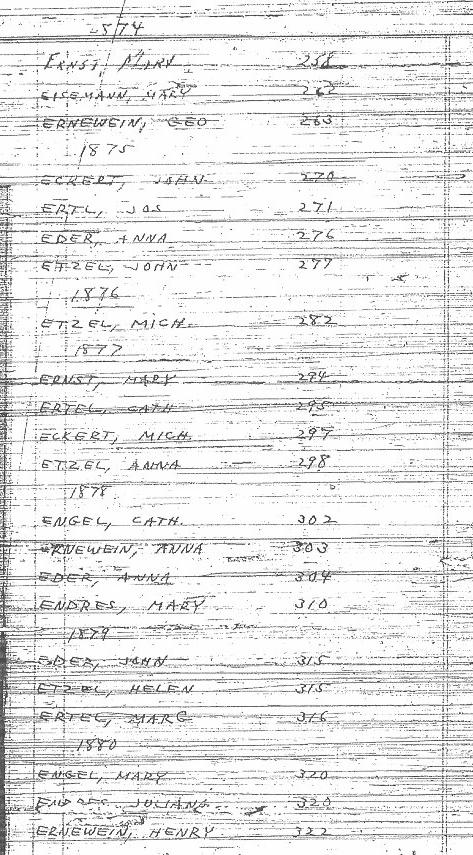 1874
ERNST, MARY 258
EISEMANN, MARY 262
ERNEWEIN, GEO 265
1875
ECKERT, JOHN 270
ERTL, JOS 271
EDER, ANNA 276
ETZEL, JOHN 277
1876
ETZEL, MICH. 282
1877
ERNST, MARY 294
ERTEL, CATH 295
ECKERT, MICH. 297
ETZEL, ANNA 298
1878
ENGEL, CATH. 302
ERNEWEIN, ANNA 303
EDER, ANNA 304
ENDRES, MARY 310
1879
EDER, JOHN 315
ETZEL, HELEN 315
ERTEL, MARG 316
1880
ENGEL, MARY 320
ENDRES, JULIANA 320
ERNEWEIN, HENRY 322